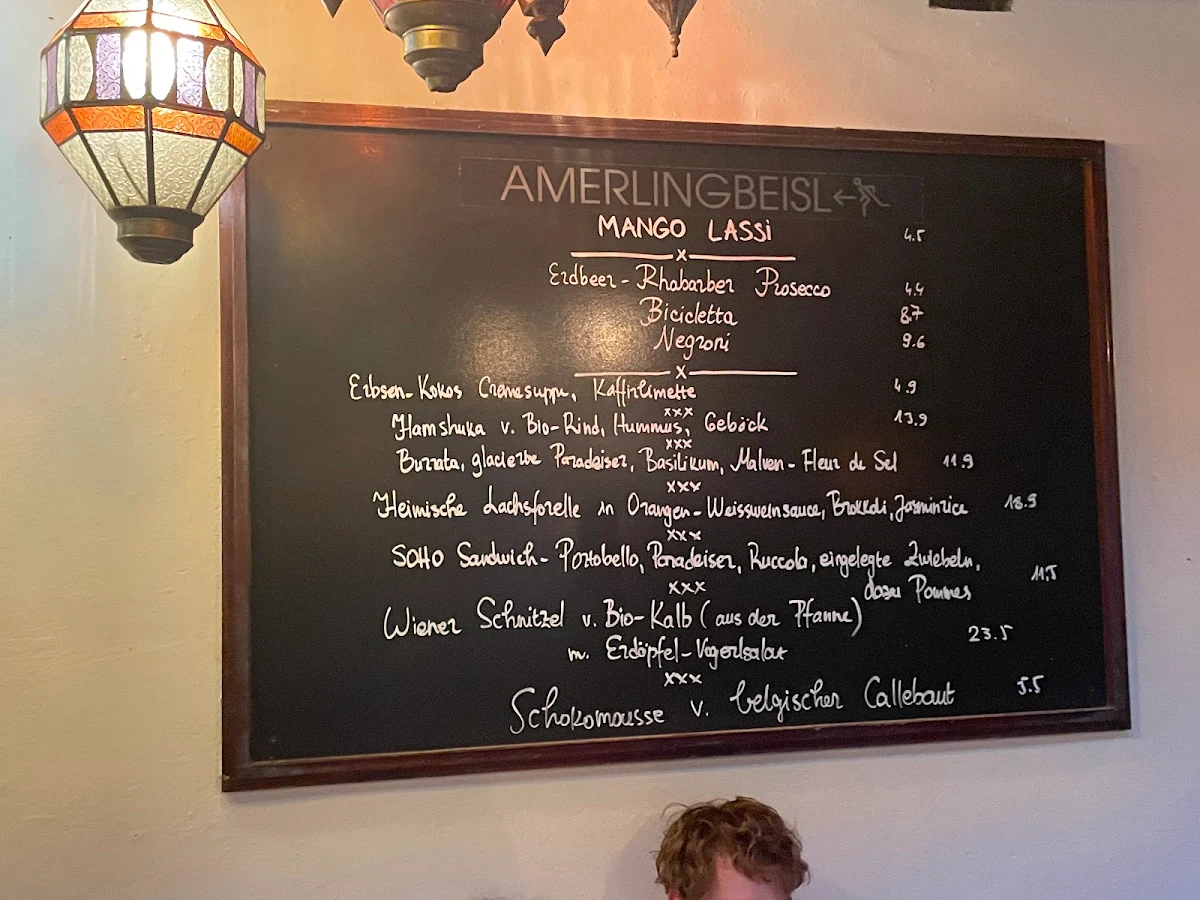 AMERLINGBEISL
MANGO LASSi 4.5
x
Erdbeer-Rhabarber Prosecco 4.4
Bicicletta 8.7
Negroni 9.6
x
Erbsen-Kokos Cremesuppe, Kaffirlimette 4.9
xxx
Hamshuka v. Bio-Rind, Hummus, Geböck 13.9
xxx
Burrata, glacierte Paradeiser, Basilikum, Malven-Fleur de Sel 11.9
xxx
Heimische Lachsforelle in Orangen-Weissweinsauce, Brokkoli, Jasminrice 18.9
xxx
SOHO Sandwich-Portobello, Paradeiser, Ruccola, eingelegte Zwiebeln, 11.5
xxx dazu Pommes
Wiener Schnitzel v. Bio-Kalb (aus der Pfanne) 23.5
m. Erdöpfel-Vogerlsalat
xxx
Schokomousse v. belgischer Callebaut 5.5